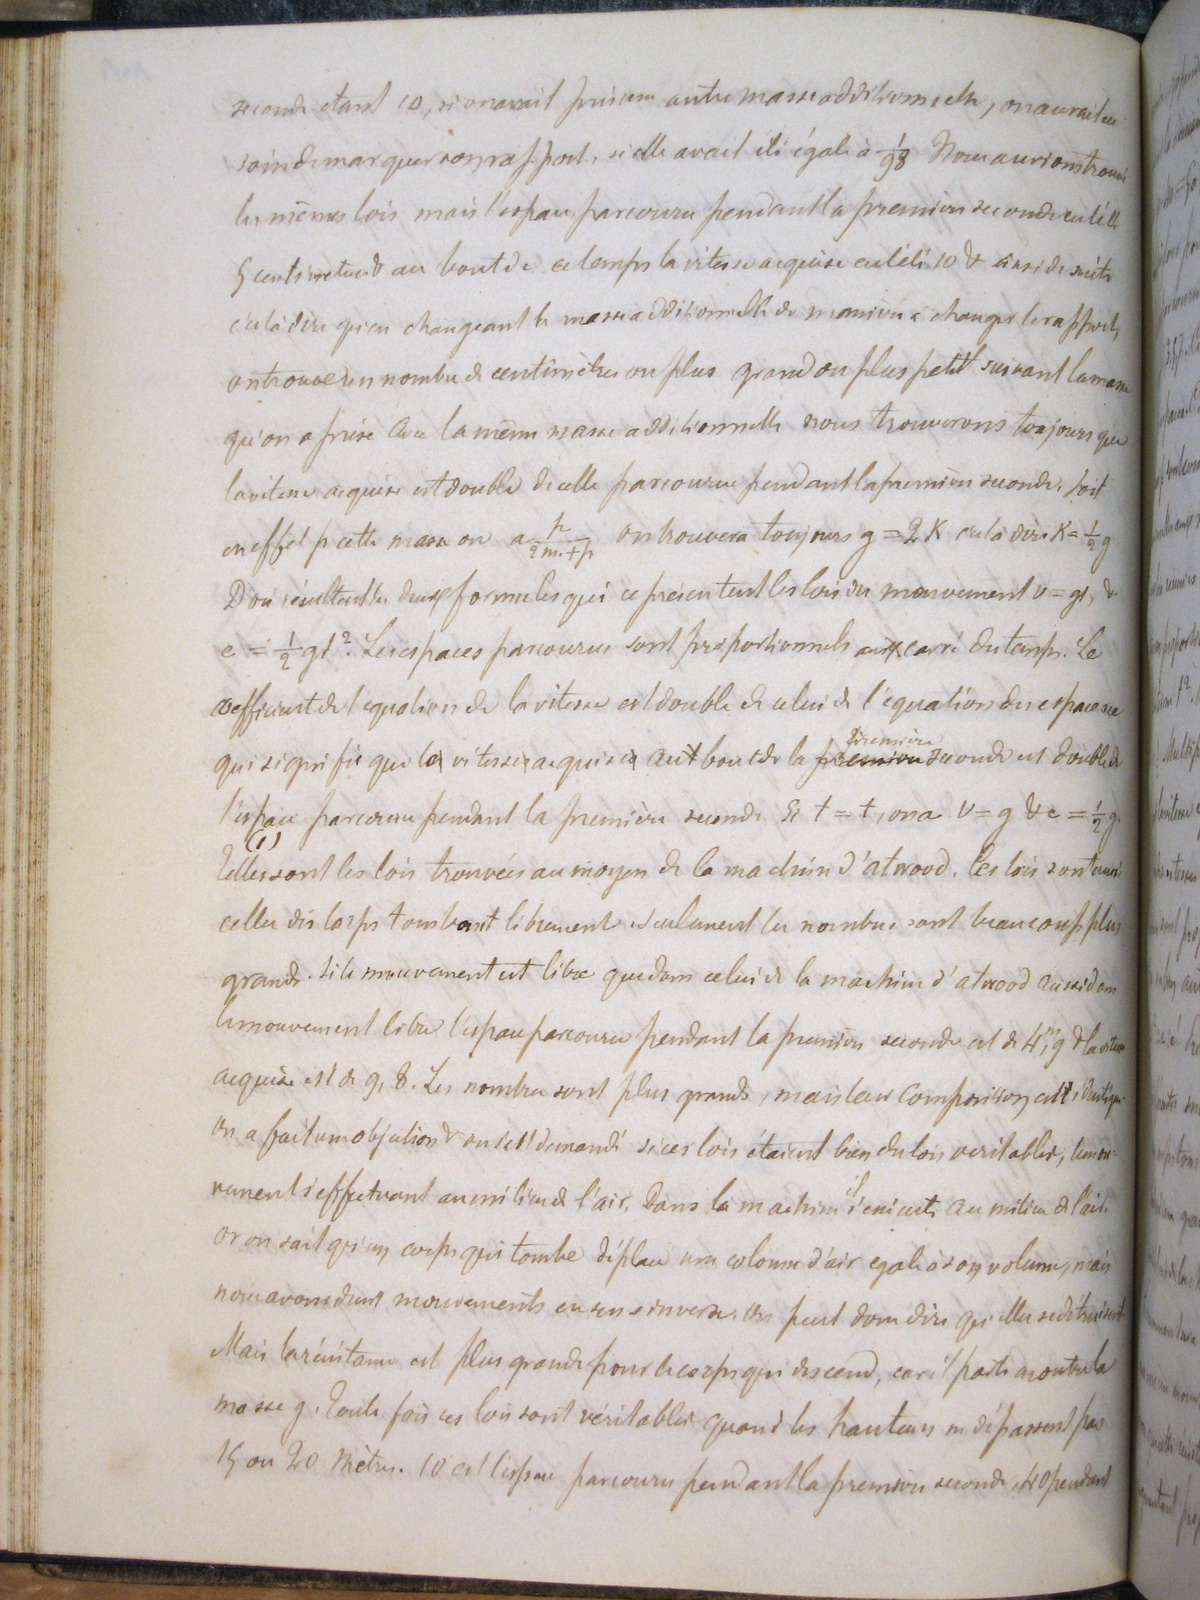 seconde étant 10, si on avait pris une autre masse additionnelle, on aurait eu
soin de marquer son rapport, si elle avait été égale à 1/98 Nous aurions trouvé
les mêmes lois mais l'espace parcouru pendant la première seconde eut été
5 centimètres & au bout de ce temps la vitesse acquise eut été 10 & ainsi de suite
c'est à dire qu'en changeant la masse additionnelle de manière à changer le rapport,
on trouve un nombre de centimètres ou plus grand ou plus petit suivant la masse
qu'on a prise Avec la même masse additionnelle nous trouverons toujours que
la vitesse acquise est double de celle parcourue pendant la première seconde. Soit
en effet p cette masse on a p/2m+p on trouvera toujours g = 2K c'est à dire K = 1/2 g
D'où résultent les deux formules qui représentent les lois du mouvement v = gt, &
e = 1/2 gt². Les espaces parcourus sont proportionnels aux carré du temps. Le
coefficient de l'équation de la vitesse est double de celui de l'équation des espaces ce
qui signifie que la vitesse acquise au bout de la première seconde est double de
l'espace parcouru pendant la première seconde Si t = t, on a v = g & e = 1/2 g.
(1)
Telles sont les lois trouvées au moyen de la machine d'atwood. Ces lois sont aussi
celles des corps tombant librement seulement les nombres sont beaucoup plus
grands. Si le mouvement est libre que dans celui de la machine d'atwood aussi dans
le mouvement libre l'espace parcouru pendant la première seconde est de 4m,9 & la vitesse
acquise est de 9,8. Les nombres sont plus grands, mais leur comparaison est identique
On a fait une objection & on s'est demandé si ces lois étaient bien des lois véritables, le mou-
vement s'effectuant au milieu de l'air. Dans la machine il s'exécute au milieu de l'air.
Or on sait qu'un corps qui tombe déplace une colonne d'air égale à son volume, mais
nous avons deux mouvements en sens inverse. On peut donc dire qu'elles se détruisent
Mais la résistance est plus grande pour le corps qui descend, car il porte en outre la
masse g. Toutefois ces lois sont véritables quand les hauteurs ne dépassent pas
15 ou 20 mètres. 10 est l'espace parcouru pendant la première seconde, 40 pendant